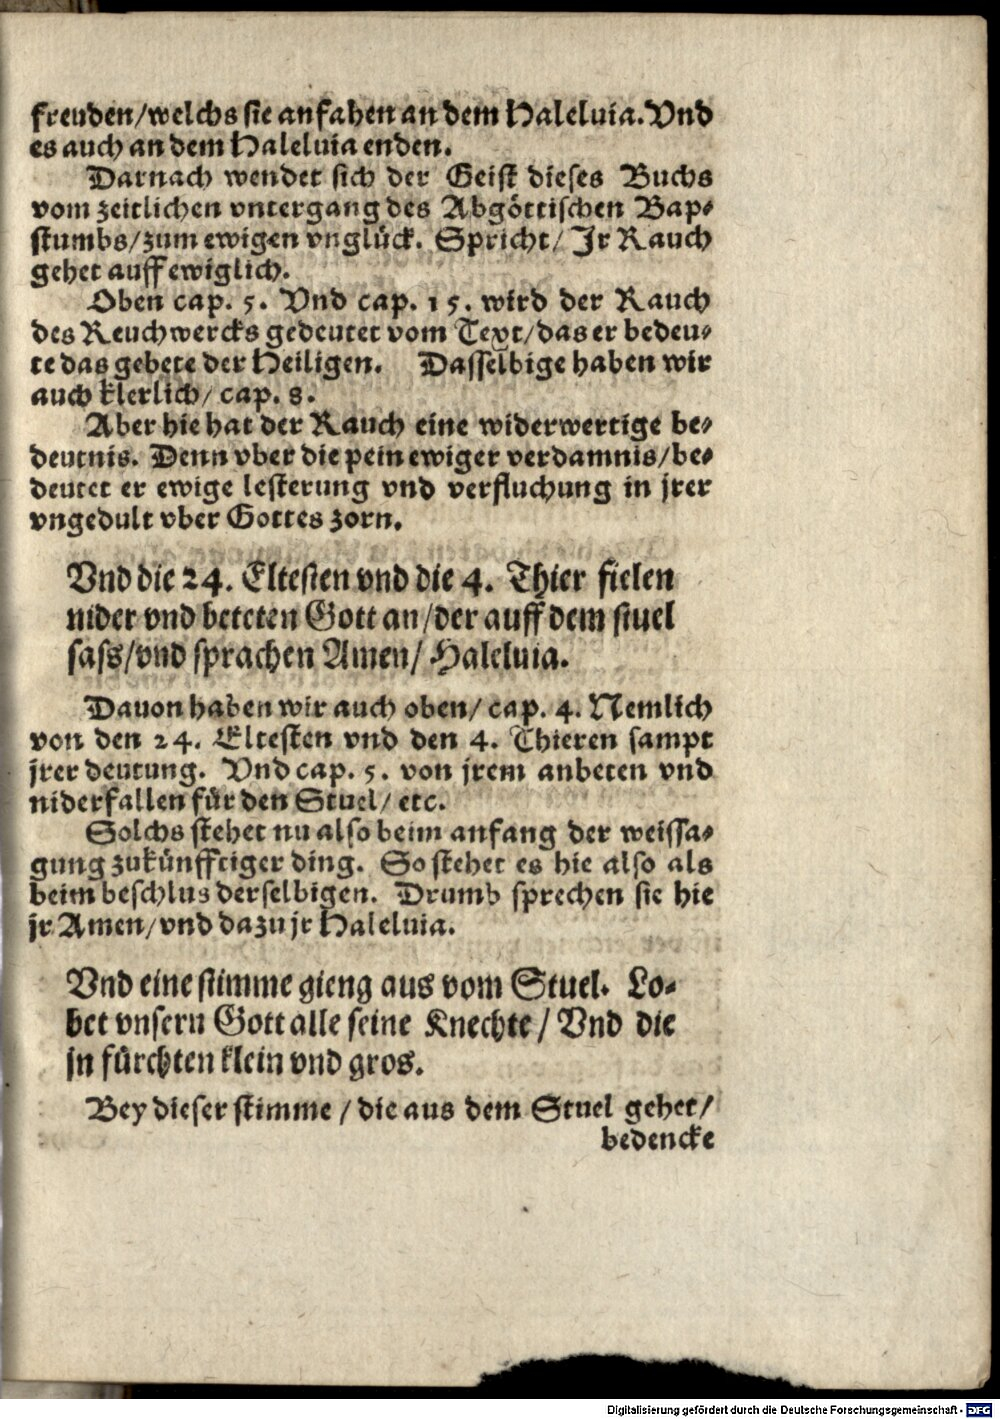 freuden/welchs sie anfahen an dem Haleluia. Vnd
es auch an dem Haleluia enden.
Darnach wendet sich der Geist dieses Buchs
vom zeitlichen vntergang des Abgöttischen Bap-
stumbs/zum ewigen vnglück. Spricht/ Jr Rauch
gehet auff ewiglich.
Oben cap. 5. Vnd cap. 15. wird der Rauch
des Reuchwercks gedeutet vom Text/das er bedeu-
te das gebete der Heiligen. Dasselbige haben wir
auch klerlich/ cap. 8.
Aber hie hat der Rauch eine widerwertige be-
deutnis. Denn vber die pein ewiger verdamnis/be-
deutet er ewige lesterung vnd verfluchung in jrer
vngedult vber Gottes zorn.
Vnd die 24. Eltesten vnd die 4. Thier fielen
nider vnd beteten Gott an/der auff dem stuel
sass/vnd sprachen Amen/ Haleluia.
Dauon haben wir auch oben/ cap. 4. Nemlich
von den 24. Eltesten vnd den 4. Thieren sampt
jrer deutung. Vnd cap. 5. von jrem anbeten vnd
niderfallen für den Stuel/ etc.
Solchs stehet nu also beim anfang der weissa-
gung zukünfftiger ding. So stehet es hie also als
beim beschlus derselbigen. Drumb sprechen sie hie
jr Amen/vnd dazu jr Haleluia.
Vnd eine stimme gieng aus vom Stuel. Lo-
bet vnsern Gott alle seine Knechte/ Vnd die
jn fürchten klein vnd gros.
Bey dieser stimme / die aus dem Stuel gehet/
bedencke
Digitalisierung gefördert durch die Deutsche Forschungsgemeinschaft - DFG